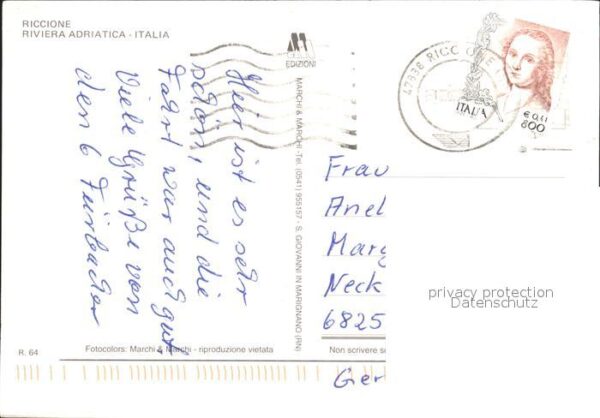 RICCIONE
RIVIERA ADRIATICA - ITALIA
EDIZIONI
MARCHI & MARCHI - Tel. (0541) 955157 - S. GIOVANNI IN MARIGNANO (RN)
Hier ist es sehr
schön, und die
Fahrt war auch gut.
Viele Grüße von
den 6
47838 RICCIONE
ITALIA
€ 0,41
800
Frau
Anel
Marg
Neck
6825
Ger
privacy protection
Datenschutz
R. 64
Fotocolors: Marchi & Marchi - riproduzione vietata
Non scrivere s